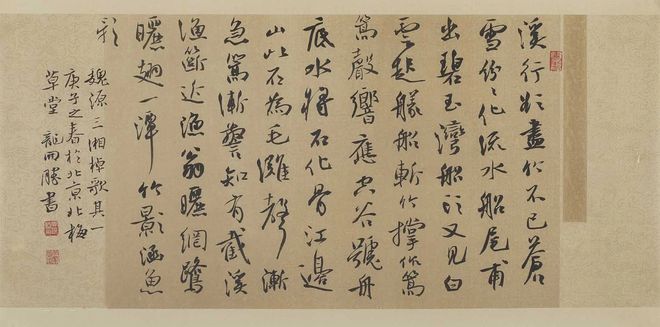 溪行欲盡竹不已蒼
雪紛紛化流水船尾甫
出碧玉灣船頭又見白
雲起艤船斬竹撐作篙
篙聲響應空谷號舟
底水將石化骨江邊
山以石為毛灘聲漸
急篙漸警知有截溪
漁籪近漁翁曬網鷺
曬翅一潭竹影涵魚
影
魏源三湘棹歌其一
庚子之春於北京北梅
草堂 書